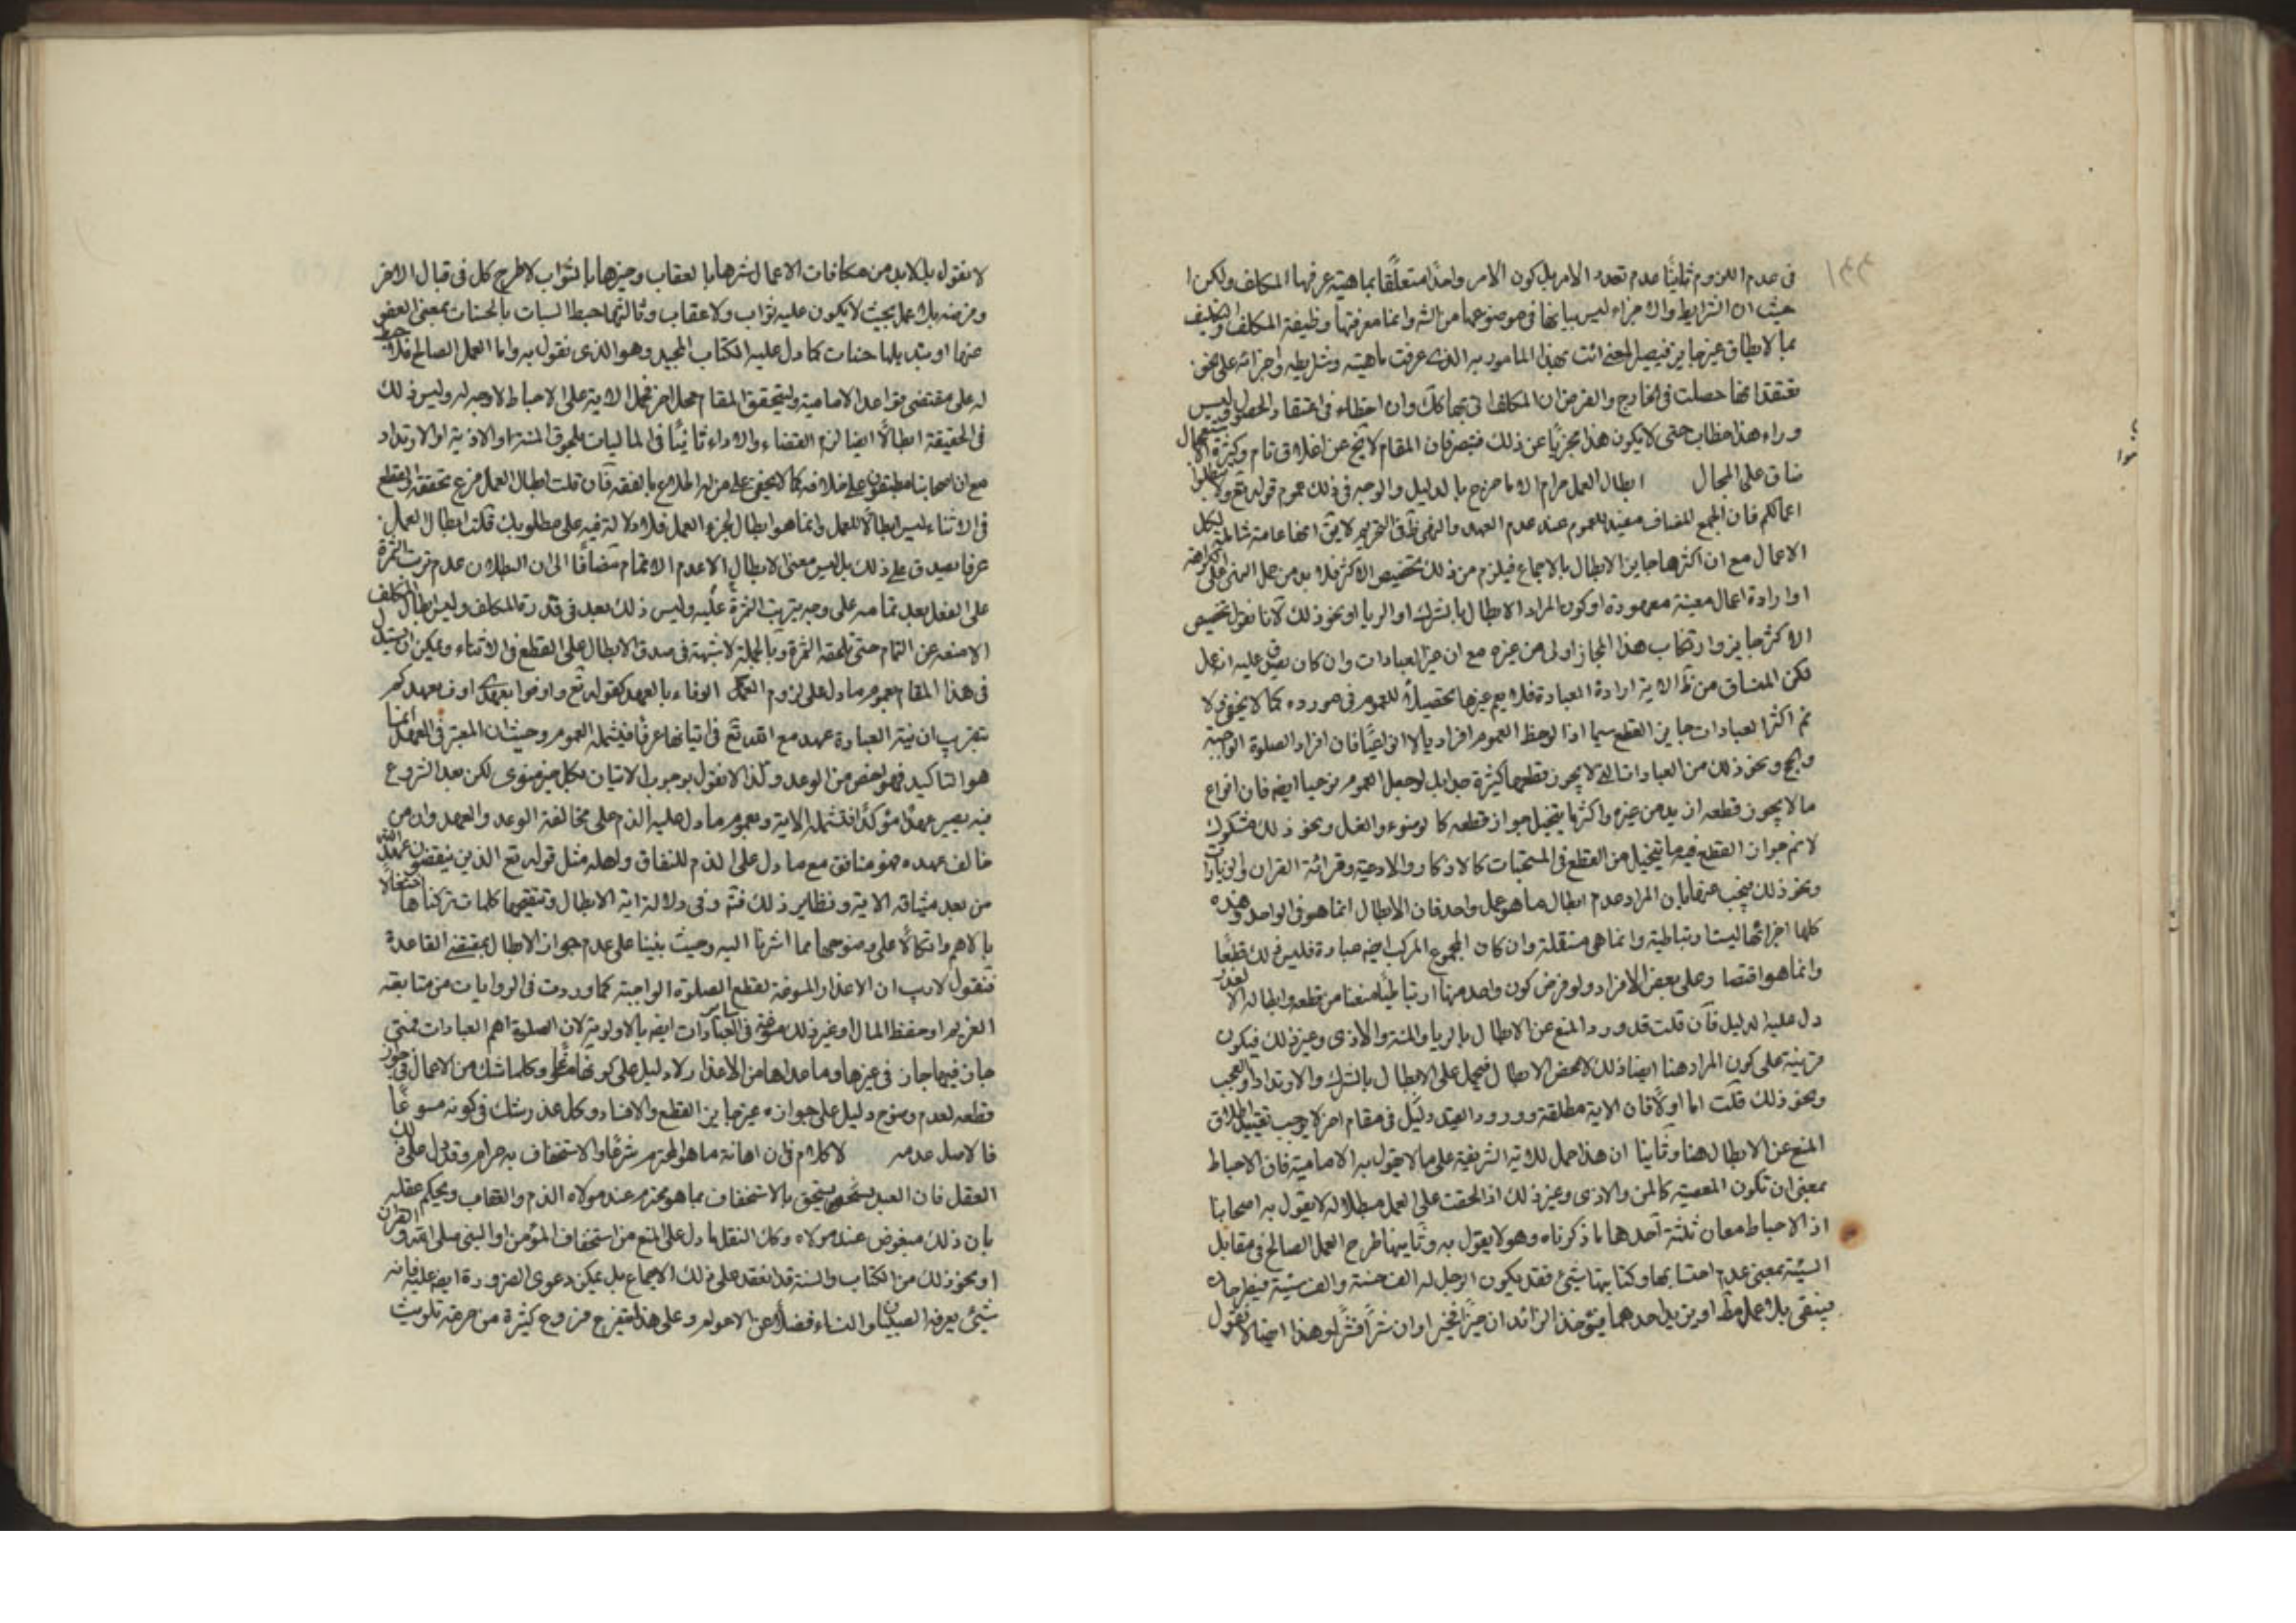 ١٤٤
فى عدم اللزوم ثانيًا عدم تعدد الامر بل كون الامر واحدًا متعلّقا بماهيته عرفها المكلف ولكن
حيث ان الشرايط والاجزاء ليس بيانها فى موضوعها من الشه وانما معرفتها وظيفة المكلف والتكليف
بما لا يطاق غير جايز فيصير المعنى ائت بهذا المامور به الذى عرفت ماهيته وشرايطه واجزائه على نحو
تعتقد انها حصلت فى الخارج والفرض ان المكلف اتى بها كك وان اخطاء فى اعتقاد الحصول فليس
وراء هذا خطاب حتى لا يكون هذا مجزيًا عن ذلك فتبصر فان المقام لا يخ عن اغلاق تام وكثرة الاستعجال
ضاق على المجال ابطال العمل حرام الا ما خرج بالدليل والوجه فى ذلك عموم قوله تع ولا تبطلوا
اعمالكم فان الجمع المضاف مفيد للعموم عند عدم العهد والنهى ظ فى التحريم لا يق انها عامة شاملة لكل
الاعمال مع ان اكثرها جايز الابطال بالاجماع فيلزم من ذلك تخصيص الاكثر فلا بد من حمل النهى على الكراهة
او ارادة اعمال معينة معهودة او كون المراد الابطال بالشرك او الريا او نحو ذلك لانا نقول تخصيص
الاكثر جايز وارتكاب هذا المجاز اولى من غيره مع ان غير العبادات وان كان يصدق عليه انه عمل
لكن المنساق من ظ الاية ارادة العبادة فلا يعم غيرها تحصيلًا للعموم فى مورده كما لا يخفى ولا
نم اكثر العبادات جايز القطع سيما اذا لوحظ العموم افراديا لا انواعيًا فان افراد الصلوة الواجبة
والحج ونحو ذلك من العبادات التى لا يجوز قطعها كثيرة جدا بل لو جعل العموم نوعيا ايضه فان انواع
ما لا يجوز قطعه ازيد من غيره واكثر ما يتخيل جواز قطعه كالوضوء والغسل ونحو ذلك مشكوك
لا نم جواز القطع فيه وما يتخيل من القطع فى المستحبات كالاذكار والادعية وقرائة القران والزيارات
ونحو ذلك يجب عنها بان المراد عدم ابطال ما هو عمل واحد فان الابطال انما هو فى الواحد وهذه
كلها اجزائها ليست ارتباطية وانما هى مستقلة وان كان المجموع المركب ايضه عبادة فليس ذلك قطعًا
وانما هو اقتصار على بعض الافراد ولو فرض كون واحد منها ارتباطيًا منعنا من قطعه وابطاله الا لعذر
دل عليه الدليل فان قلت قد ورد المنع عن الابطال بالريا والمنة والاذى وغير ذلك فيكون
قرينة على كون المراد هنا ايضا ذلك لا محض الابطال فيحمل على الابطال بالشرك والارتداد والعجب
ونحو ذلك قلت اما اولًا فان الاية مطلقة وورود القيد دليل فى مقام اخر لا يوجب تقييد اطلاق
المنع عن الابطال هنا وثانيا ان هذا حمل للاية الشريفة على ما لا يقول به الامامية فان الاحباط
بمعنى ان تكون المعصية كالمن والاذى وغير ذلك اذا لحقت على العمل مبطلا له لا يقول به اصحابنا
اذ الاحباط معان ثلثة احدها ما ذكرناه وهو لا يقول به وثانيها طرح العمل الصالح فى مقابل
السيئة بمعنى عدم احتسابها وكتابتها بشئ فقد يكون الرجل له الف حسنة والف سيئة فيطرحان
فيبقى بلا عمل مط او يزيد احدهما فيؤخذ الزائد ان خيرًا فخير او ان شرًا فشرًا وهذا ايضا لا نقول
لا نقول به بل لا بد من مكافات الاعمال شرها بالعقاب وخيرها بالثواب لا طرح كل فى قبال الاخر
وفرضه بلا عمل بحيث لا يكون عليه ثواب ولا عقاب وثالثها حبط السيات بالحسنات بمعنى العفو
عنها او بتبديلها حسنات كما دل عليه الكتاب المجيد وهو الذى نقول به واما العمل الصالح فلا حبط
له على مقتضى قواعد الامامية ولتحقق المقام محل اخر فحمل الاية على الاحباط لا وجه له وليس ذلك
فى الحقيقة ابطالًا ايضا لزم القضاء والاداء ثانيًا فى الماليات للحوق المنة او الاذية او الارتداد
مع ان اصحابنا مطبقون على خلافه كما لا يخفى على من له اطلاع بالفقه فان قلت ابطال العمل فرع تحققه والقطع
فى الاثناء ليس ابطالًا للعمل وانما هو ابطال لجزء العمل فلا دلالة فيه على مطلوبك قلت ابطال العمل
عرفا يصدق على ذلك بل ليس معنى الابطال الا عدم الاتمام مضافا الى ان البطلان عدم ترتب الثمرة
على الفعل بعد تمامه على وجه يترتب الثمرة عليه وليس ذلك بعد فى قدرة المكلف وليس ابطال المكلف
الا منعه عن التمام حتى تلحقه الثمرة وبالجملة لا شبهة فى صدق الابطال على القطع فى الاثناء ويمكن ان يستدل
فى هذا المقام بعموم ما دل على لزوم العمل الوفاء بالعهد كقوله تع واوفوا بعهدى اوف بعهدكم
بتقريب ان نية العبادة عهد مع الله تع فى اتيانها عرفًا فيشمله العموم وحيث ان المعتبر فى العهد ايضا
هو التاكيد فهو اخص من الوعد ولذا لا نقول بوجوب الاتيان بكل خير منوى لكن بعد الشروع
فيه يصير عهدًا مؤكدًا فتشمله الاية وبعموم ما دل عليه الذم على مخالفة الوعد والعهد وان من
خالف عهده فهو منافق مع ما دل على الذم للنفاق واهله مثل قوله تع الذين ينقضون عهد الله
من بعد ميثاقه الاية ونظاير ذلك فتم وفى دلالة اية الابطال وتنقيحها كلمات تركناها اشتغالًا
بالاهم واتكالًا على وضوحها مما اشرنا اليه وحيث بنينا على عدم جواز الابطال بمقتضى القاعدة
فنقول لا ريب ان الاعذار المسوغة لقطع الصلوة الواجبة كما وردت فى الروايات من متابعة
الغريم او حفظ المال او غير ذلك مسوغة فى ساير العبادات ايضه بالاولوية لان الصلوة اهم العبادات فمتى
جاز فيها جاز فى غيرها وما عداها من الاعذار لا دليل على كونها مسوغة وكلما شك من الاعمال فى جواز
قطعه لعدم وضوح دليل على جوازه غير جايز القطع والافساد وكل عذر شك فى كونه مسوغًا
فالاصل عدمه لا كلام فى ان اهانة ما هو المحترم شرعًا والاستخفاف به حرام وقد دل على ذلك
العقل فان العبد يستحق بالاستخفاف بما هو محترم عند مولاه الذم والعقاب ويحكم عقله
بان ذلك مبغوض عند مولاه وكك النقل ما دل على المنع من استخفاف المؤمن او النبى صلى الله او القران
او نحو ذلك من الكتاب والسنة قد انعقد على ذلك الاجماع بل يمكن دعوى الضرورة ايضه عليه فانه
شيئ يعرفه الصبيان والنساء فضلًا عن الاعوام وعلى هذا يتفرع فروع كثيرة من حرمة تلويث